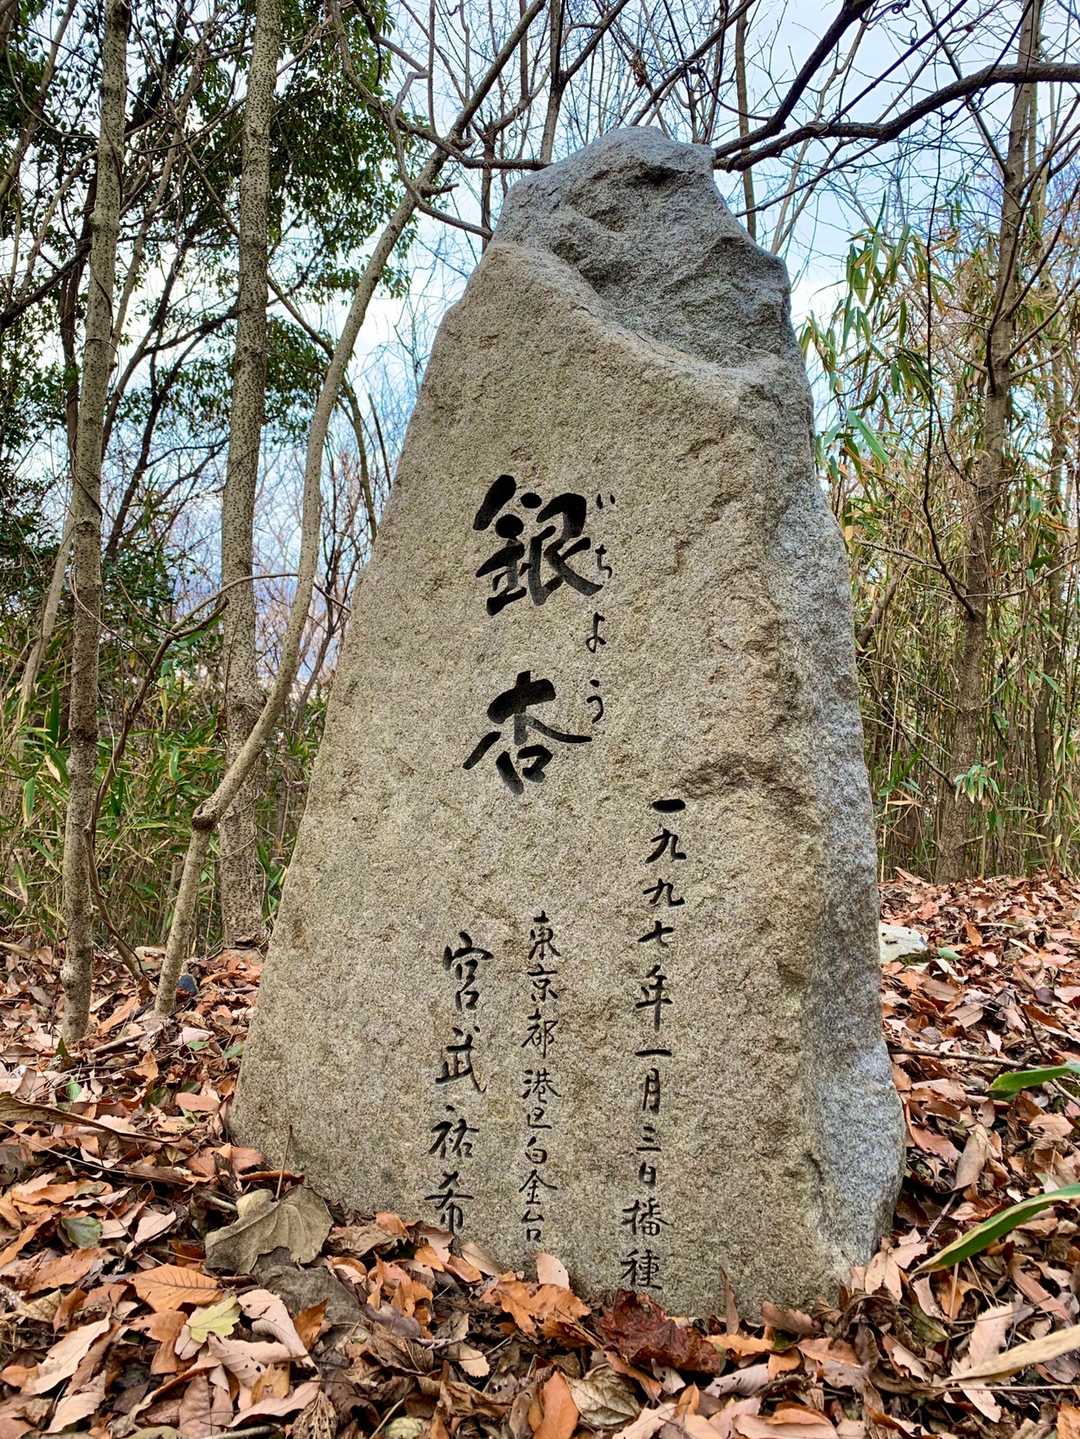 銀杏
いちよう
一九九七年一月三日播種
東京都港区白金台
宮武祐希